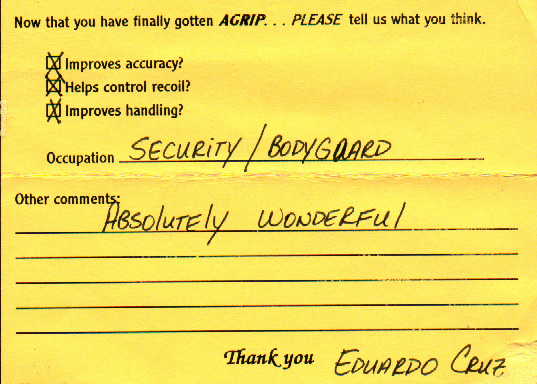 Now that you have finally gotten AGRIP. . . PLEASE tell us what you think.
Improves accuracy?
Helps control recoil?
Improves handling?
Occupation SECURITY / BODYGUARD
Other comments:
ABSOlUTEly WONDERFUl
Thank you EDUARDO CRUZ